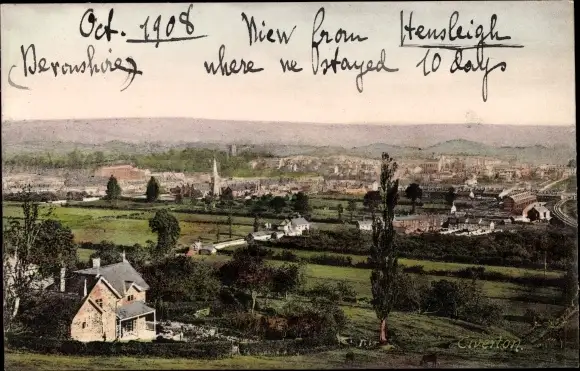 Oct. 1908 View from Hensleigh
(Devonshire) where we stayed 10 days
Tiverton.